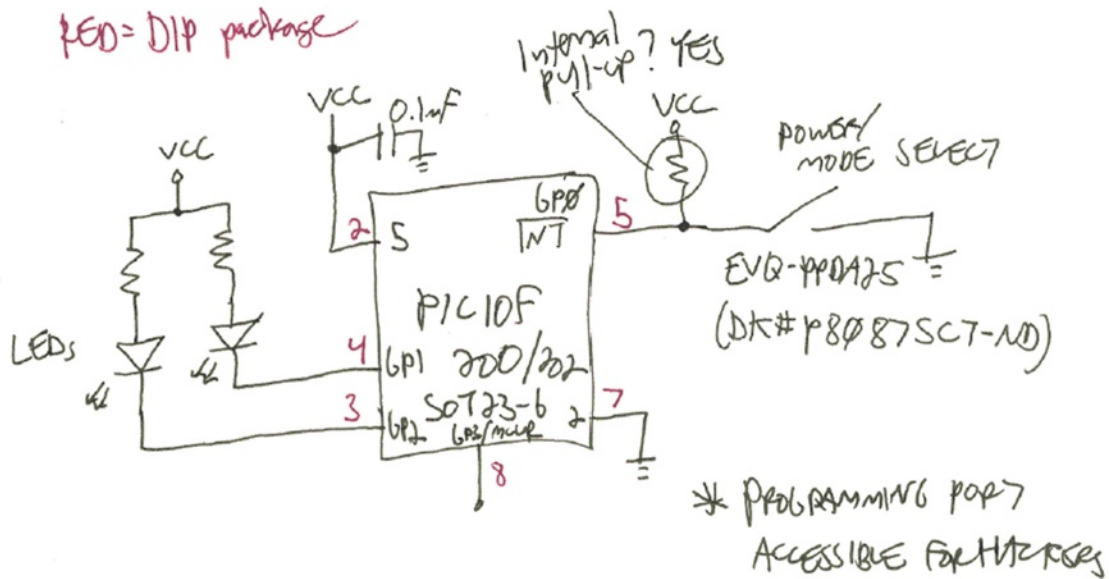 RED = DIP package
Internal
pull-up? YES
VCC
0.1uF
VCC
POWER/
MODE SELECT
VCC
GPØ
INT
5
2
5
EVQ-PPDA25
(DK# P8Ø87SCT-ND)
PIC10F
200/202
SOT23-6
LEDs
4
GP1
3
GP2
GP3/MCLR
2
7
8
* PROGRAMMING PORT
ACCESSIBLE FOR HACKERS